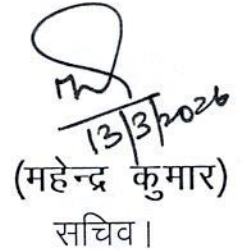 13/3/2026
(महेन्द्र कुमार)
सचिव।